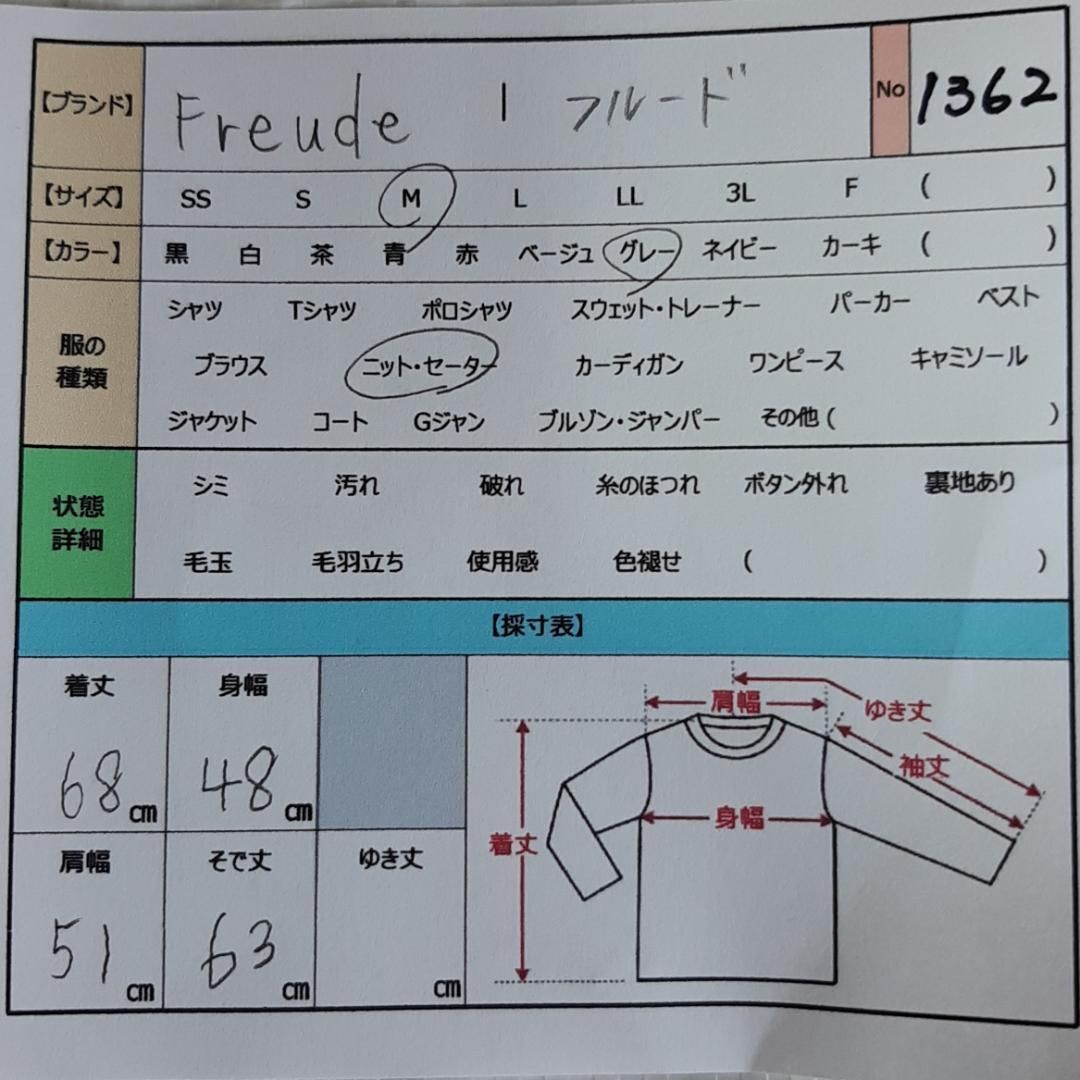 【ブランド】 Freude | フルード No 1362
【サイズ】 SS S M L LL 3L F ( )
【カラー】 黒 白 茶 青 赤 ベージュ グレー ネイビー カーキ ( )
服の種類
シャツ Tシャツ ポロシャツ スウェット・トレーナー パーカー ベスト
ブラウス ニット・セーター カーディガン ワンピース キャミソール
ジャケット コート Gジャン ブルゾン・ジャンパー その他 ( )
状態詳細
シミ 汚れ 破れ 糸のほつれ ボタン外れ 裏地あり
毛玉 毛羽立ち 使用感 色褪せ ( )
【採寸表】
着丈 身幅
68 cm 48 cm
肩幅 そで丈 ゆき丈
51 cm 63 cm cm
肩幅
ゆき丈
袖丈
身幅
着丈